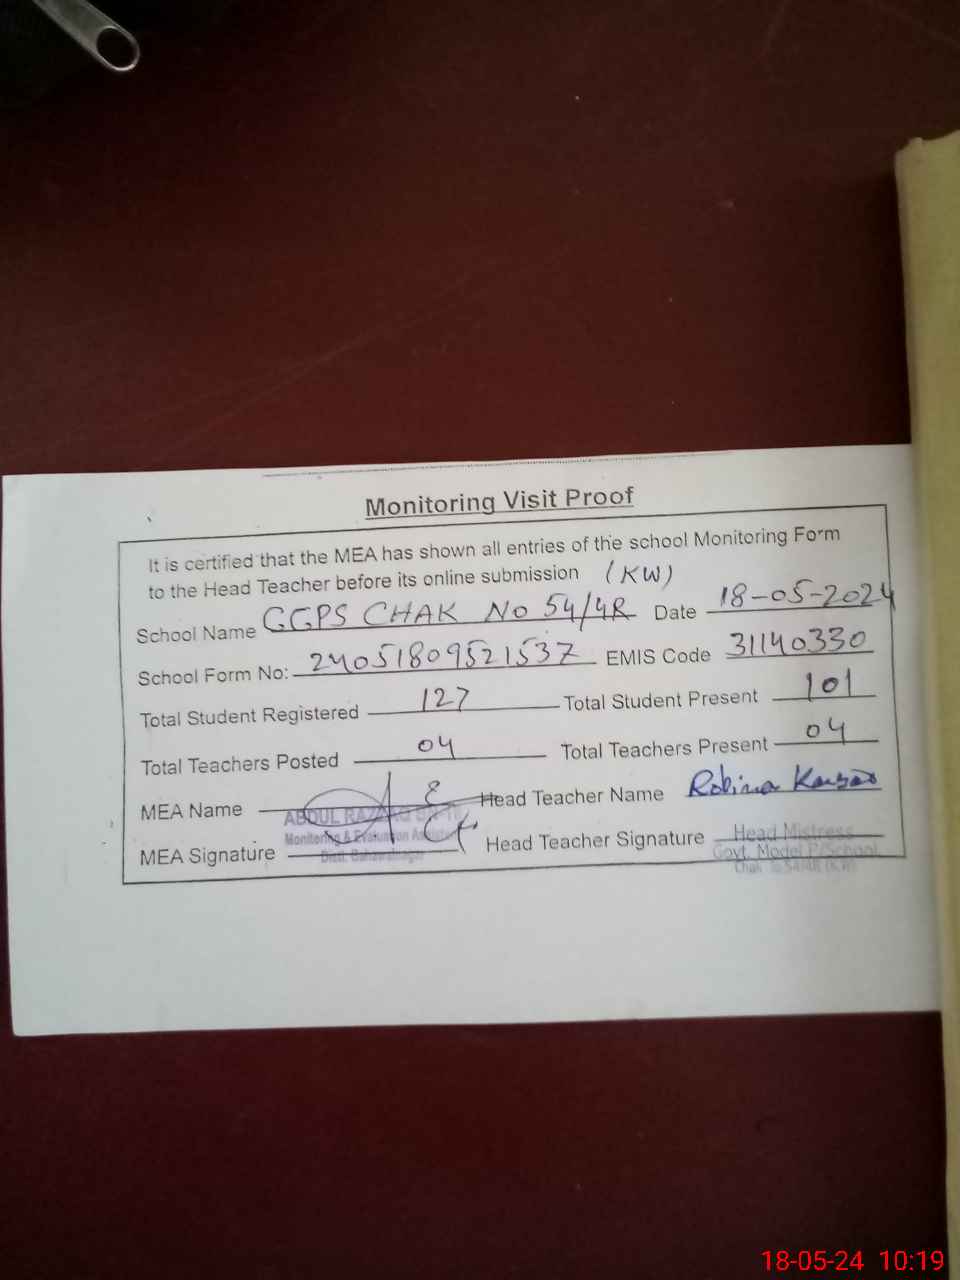 Monitoring Visit Proof
It is certified that the MEA has shown all entries of the school Monitoring Form
to the Head Teacher before its online submission (KW)
School Name GGPS CHAK No 54/4R Date 18-05-2024
School Form No: 24051809521537 EMIS Code 31140330
Total Student Registered 127 Total Student Present 101
Total Teachers Posted 04 Total Teachers Present 04
MEA Name Head Teacher Name Robina Kausar
ABDUL RAZZAQ
Monitoring & Evaluation Assistant
MEA Signature Head Teacher Signature
Distt. Bahawalnagar
Head Mistress
Govt. Model P/School
Chak
18-05-24 10:19